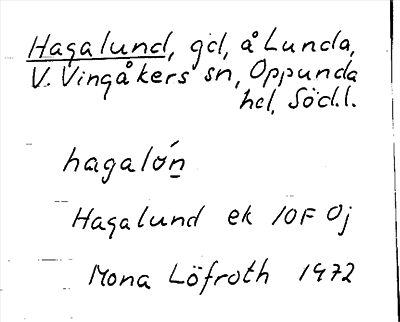 Hagalund, gd, å Lunda,
V. Vingåkers sn, Oppunda
hd, Söd.l.
hagalón̲
Hagalund ek 10F 0j
Mona Löfroth 1972